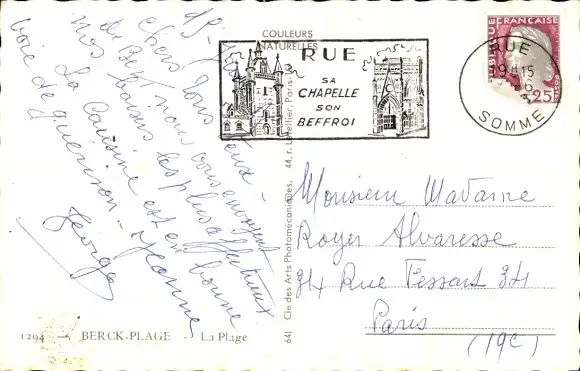 Chers Tous deux -
de Berck nous vous envoyons
nos baisers les plus affectueux
La Cousine est en bonne
voie de guérison - Jeanne
George
COULEURS
NATURELLES
RUE
SA
CHAPELLE
SON
BEFFROI
RÉPUBLIQUE FRANÇAISE
0,25
RUE
19H15
SOMME
Monsieur Madame
Roger Alvaresse
34 Rue Tessart 34
Paris
(19e)
641 Cie des Arts Photomécaniques, 44, r. Letellier, Paris-15
1294 - BERCK-PLAGE - La Plage